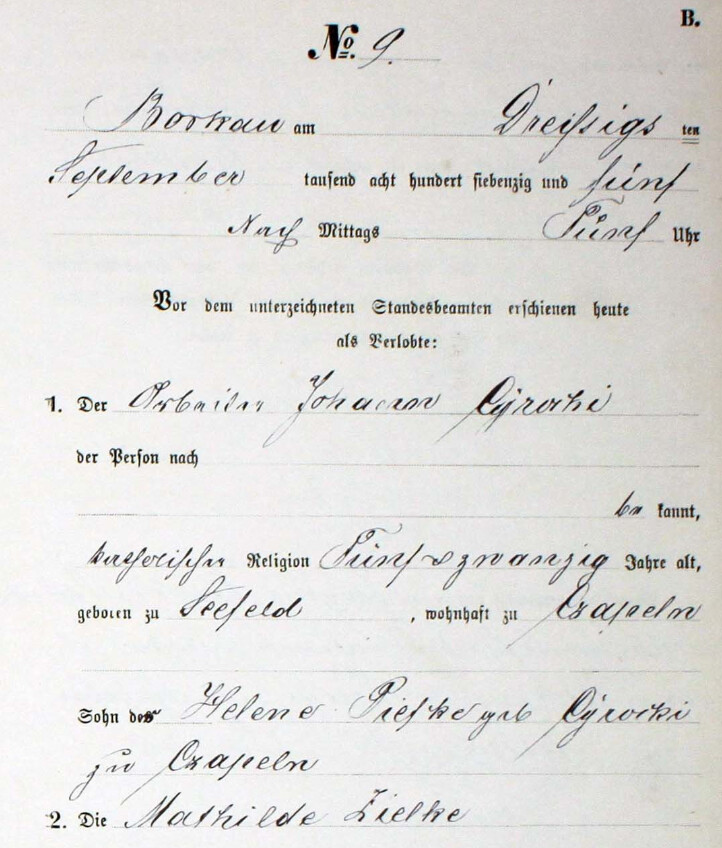 B.
No. 9.
Borkau am Dreißigs ten
September tausend acht hundert siebenzig und fünf
Nach Mittags Fünf Uhr
Vor dem unterzeichneten Standesbeamten erschienen heute
als Verlobte:
1. Der Arbeiter Johann Cÿrocki
der Person nach
be kannt,
katholischer Religion Fünf u zwanzig Jahre alt,
geboren zu Seefeld, wohnhaft zu Czapeln
Sohn der Helene Piefke geb Cÿrocki
zu Czapeln
2. Die Mathilde Zielke